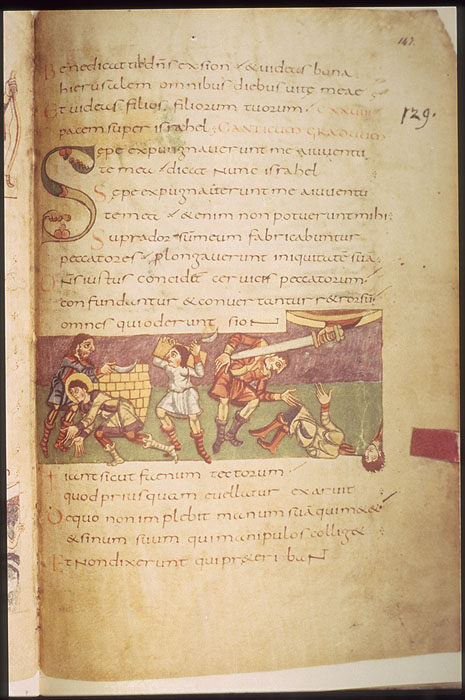 147.
Benedicat tibi dns exsion & uideas bona
hierusalem omnibus diebus uite meae
Et uideas filios filiorum tuorum CXXVIII
pacem super israhel CANTICUM GRADUUM
129.
Sepe expugnauerunt me aiuuentu
te mea dicat Nunc israhel
Sepe expugnauerunt me aiuuentu
te mea &enim non potuerunt mihi
Supra dorsum meum fabricabuntur
peccatores plongauerunt iniquitate sua
Dns iustus concidet ceruices peccatorum
confundantur & conuertantur retrorsu
omnes qui oderunt sion
Fiant sicut faenum tectorum
quod priusquam euellatur exaruit
De quo non implebit manum sua qui m&e
& sinum suum qui manipulos collig&
Et Non dixerunt qui pr&eriban